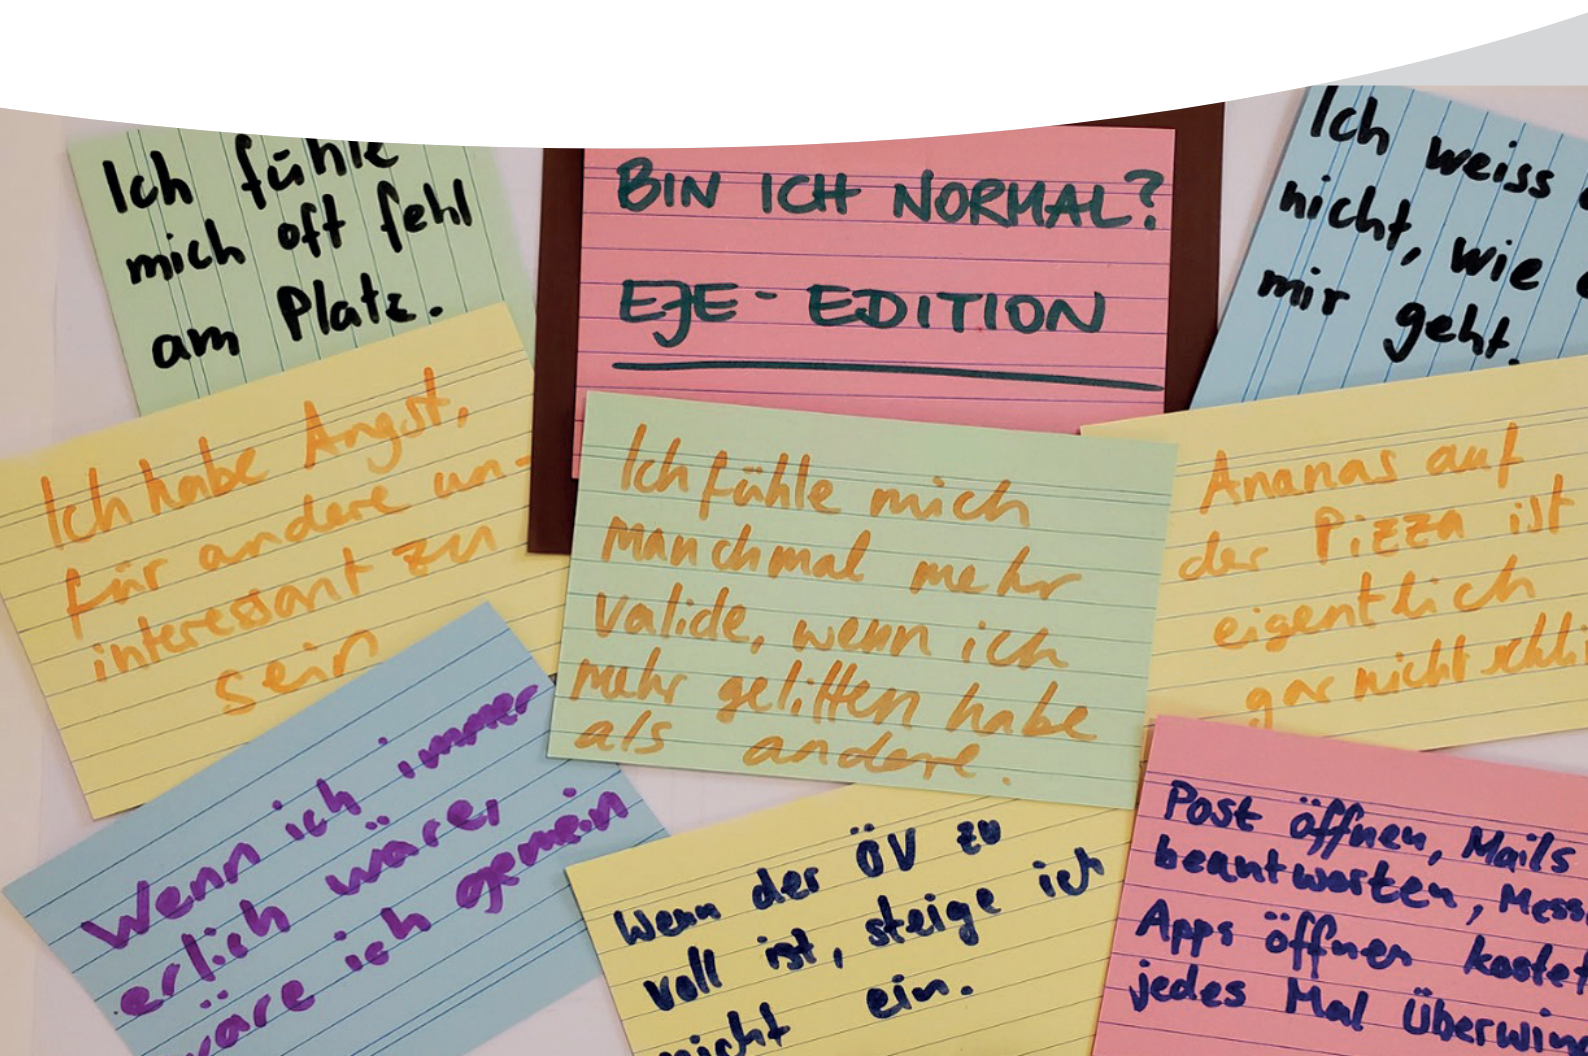 Ich fühle
mich oft fehl
am Platz.
BIN ICH NORMAL?
EJE-EDITION
Ich weiss
nicht, wie
mir geht.
Ich habe Angst,
für andere un-
interessant zu
sein
Ich fühle mich
manchmal mehr
valide, wenn ich
mehr gelitten habe
als andere.
Ananas auf
der Pizza ist
eigentlich
gar nicht schli
Wenn ich immer
erlich wäre,
wäre ich gemein
Wenn der ÖV zu
voll ist, steige ich
nicht ein.
Post öffnen, Mails
beantworten, Mess
Apps öffnen kostet
jedes Mal Überwin